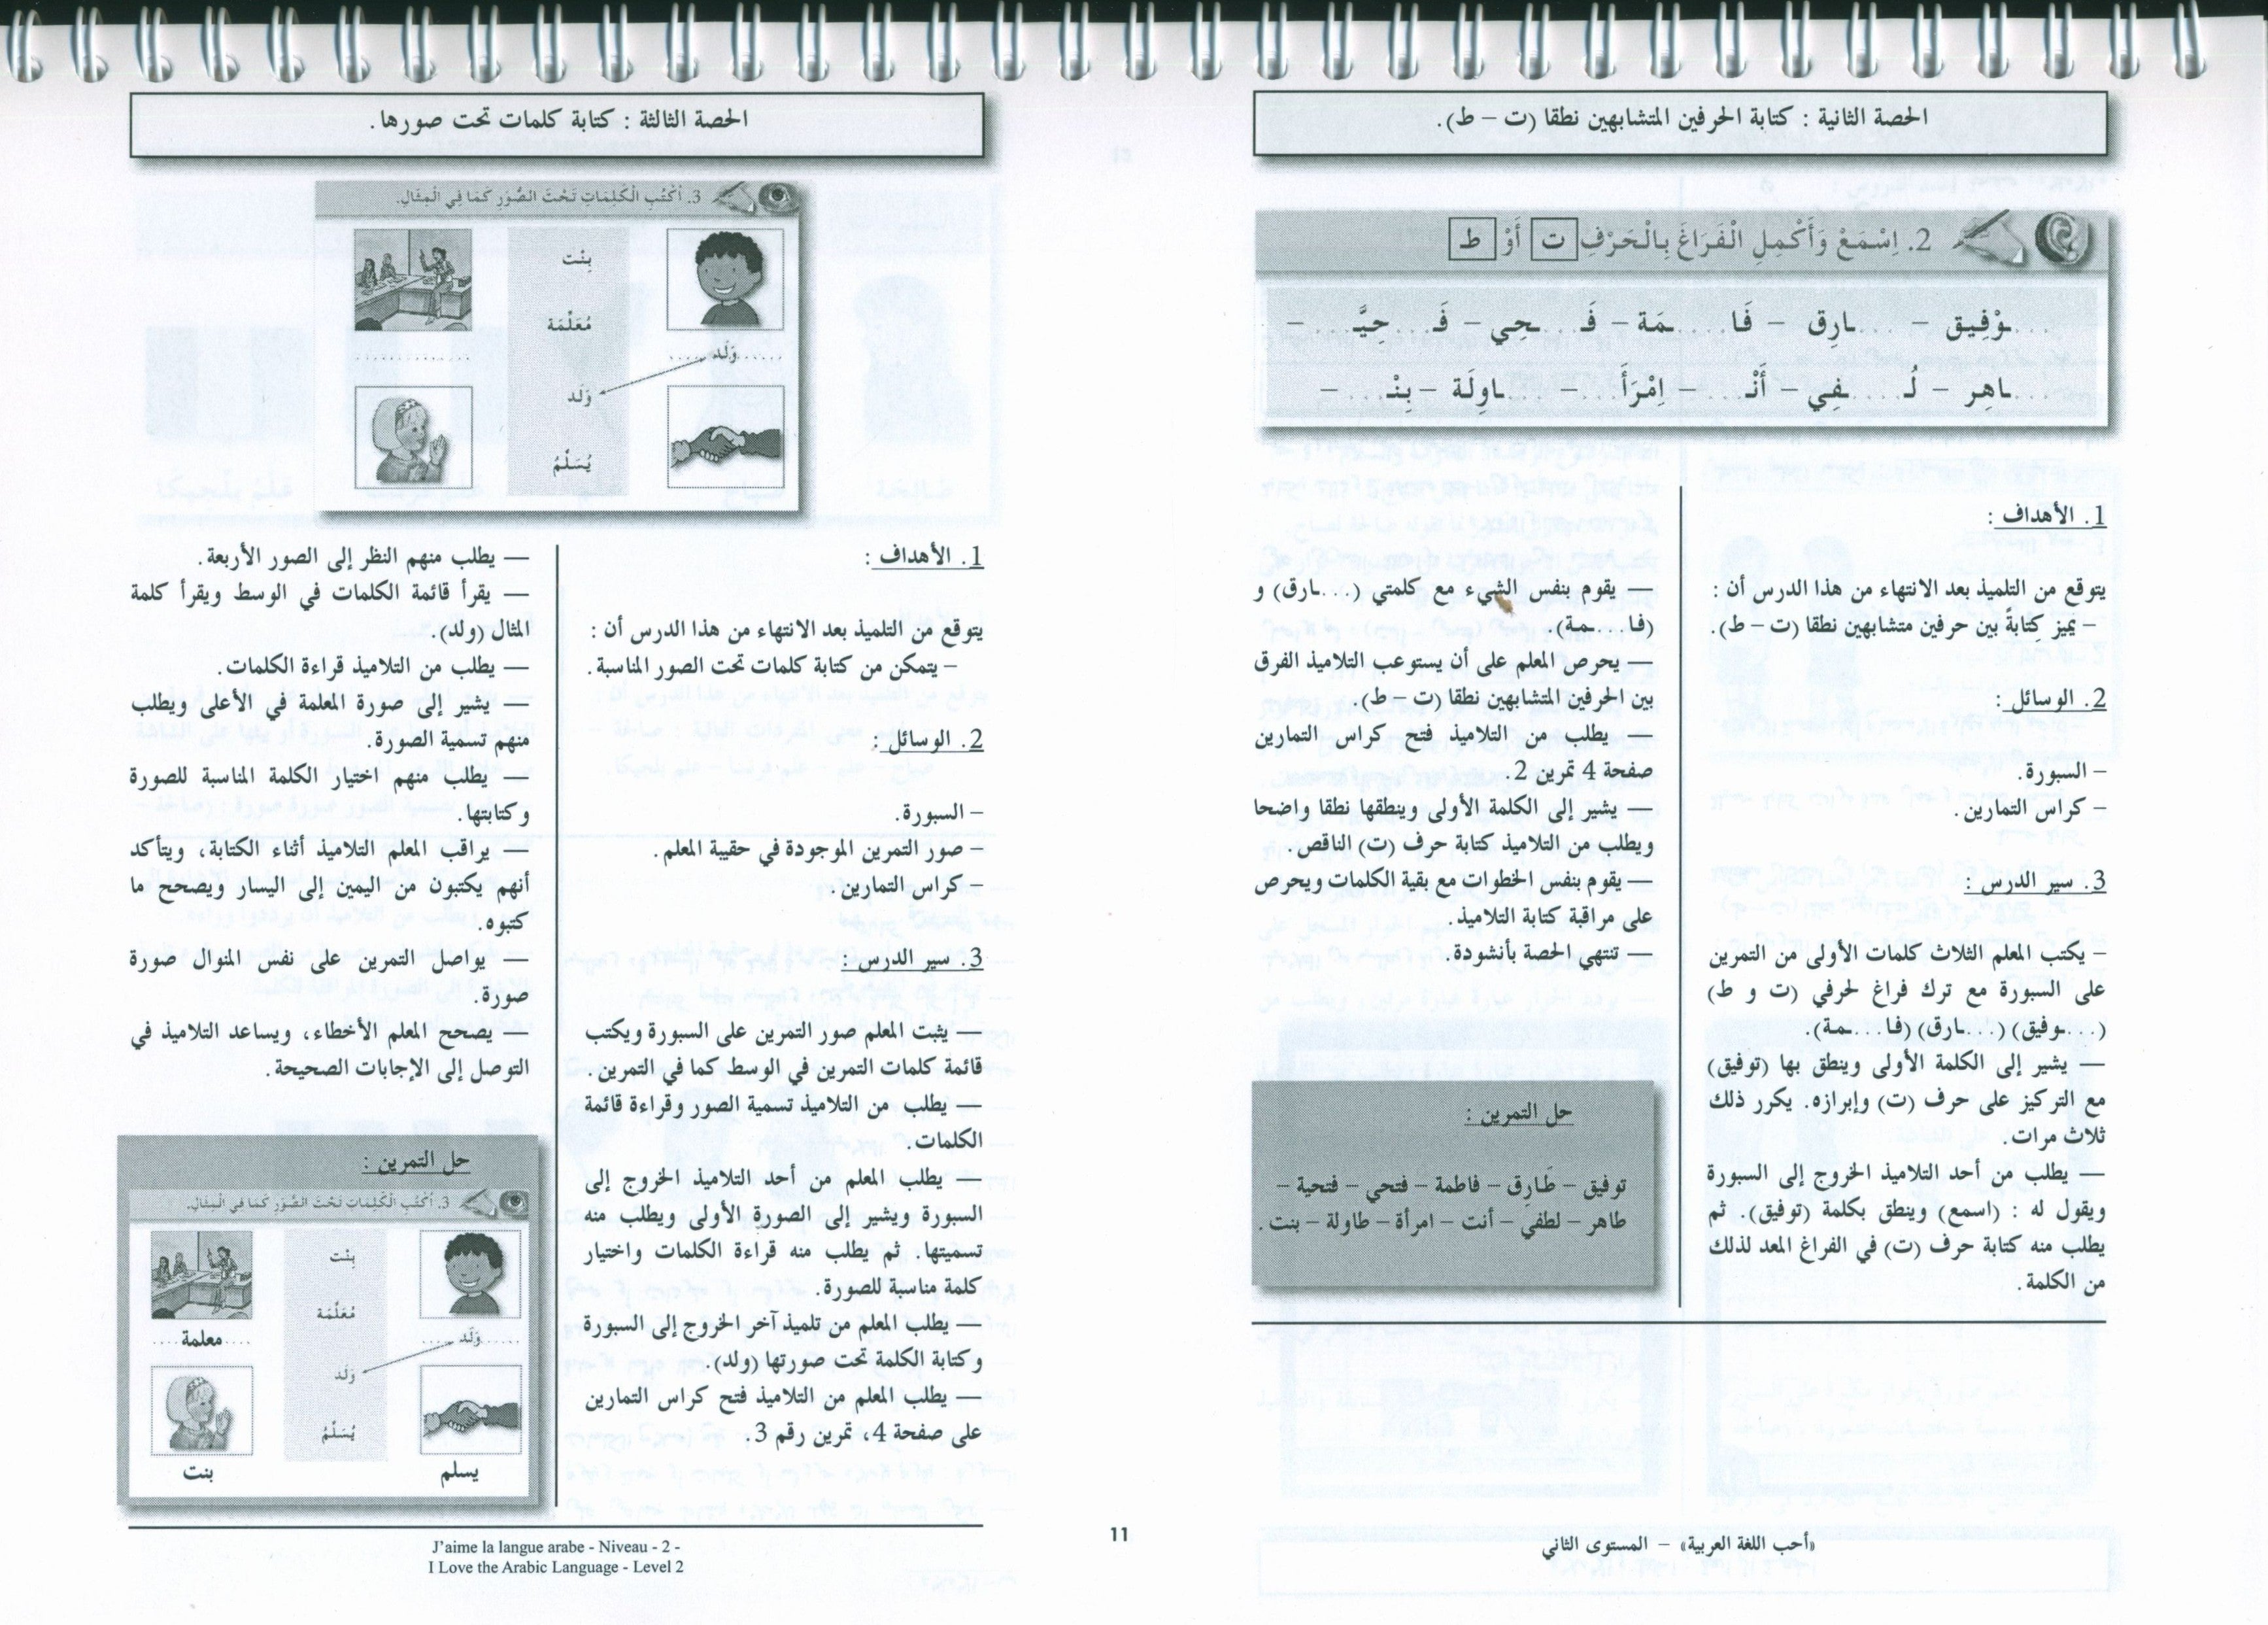 الحصة الثانية : كتابة الحرفين المتشابهين نطقا (ت – ط).
2. اِسْمَعْ وَأَكْمِلِ الْفَرَاغَ بِالْحَرْفِ ت أَوْ ط
...ـوْفِيق – ...ـارِق – فَا...ـمَة – فَـ...ـحِي – فَـ...ـحيَّـ... –
...ـاهِر – لُـ...ـفِي – أَنْـ... – اِمْرَأَ... – ...ـاوِلَة – بِنْـ... –
1. الأهداف :
يتوقع من التلميذ بعد الانتهاء من هذا الدرس أن :
– يميز كِتابةً بين حرفين متشابهين نطقا (ت – ط).
2. الوسائل :
– السبورة.
– كراس التمارين.
3. سير الدرس :
– يكتب المعلم الثلاث كلمات الأولى من التمرين
على السبورة مع ترك فراغ لحرفي (ت و ط)
(...ـوفيق) (...ـارق) (فـا...ـمة).
— يشير إلى الكلمة الأولى وينطق بها (توفيق)
مع التركيز على حرف (ت) وإبرازه. يكرر ذلك
ثلاث مرات.
— يطلب من أحد التلاميذ الخروج إلى السبورة
ويقول له : (اسمع) وينطق بكلمة (توفيق). ثم
يطلب منه كتابة حرف (ت) في الفراغ المعد لذلك
من الكلمة.
— يقوم بنفس الشيء مع كلمتي (...ـارق) و
(فـا...ـمة).
— يحرص المعلم على أن يستوعب التلاميذ الفرق
بين الحرفين المتشابهين نطقا (ت – ط).
— يطلب من التلاميذ فتح كراس التمارين
صفحة 4 تمرين 2.
— يشير إلى الكلمة الأولى وينطقها نطقا واضحا
ويطلب من التلاميذ كتابة حرف (ت) الناقص.
— يقوم بنفس الخطوات مع بقية الكلمات ويحرص
على مراقبة كتابة التلاميذ.
— تنتهي الحصة بأنشودة.
حل التمرين :
توفيق – طَارِق – فاطمة – فتحي – فتحية –
طاهر – لطفي – أنت – امرأة – طاولة – بنت.
«أحب اللغة العربية» – المستوى الثاني
11
الحصة الثالثة : كتابة كلمات تحت صورها.
3. أَكْتُبِ الْكَلِمَاتِ تَحْتَ الصُّوَرِ كَمَا فِي الْمِثَالِ.
بِنْت
مُعَلِّمَة
......وَلَد......
..............
وَلَد
يُسَلِّمُ
1. الأهداف :
يتوقع من التلميذ بعد الانتهاء من هذا الدرس أن :
– يتمكن من كتابة كلمات تحت الصور المناسبة.
2. الوسائل :
– السبورة.
– صور التمرين الموجودة في حقيبة المعلم.
– كراس التمارين.
3. سير الدرس :
— يثبت المعلم صور التمرين على السبورة ويكتب
قائمة كلمات التمرين في الوسط كما في التمرين.
— يطلب من التلاميذ تسمية الصور وقراءة قائمة
الكلمات.
— يطلب المعلم من أحد التلاميذ الخروج إلى
السبورة ويشير إلى الصورة الأولى ويطلب منه
تسميتها. ثم يطلب منه قراءة الكلمات واختيار
كلمة مناسبة للصورة.
— يطلب المعلم من تلميذ آخر الخروج إلى السبورة
وكتابة الكلمة تحت صورتها (ولد).
— يطلب المعلم من التلاميذ فتح كراس التمارين
على صفحة 4، تمرين رقم 3.
— يطلب منهم النظر إلى الصور الأربعة.
— يقرأ قائمة الكلمات في الوسط ويقرأ كلمة
المثال (ولد).
— يطلب من التلاميذ قراءة الكلمات.
— يشير إلى صورة المعلمة في الأعلى ويطلب
منهم تسمية الصورة.
— يطلب منهم اختيار الكلمة المناسبة للصورة
وكتابتها.
— يراقب المعلم التلاميذ أثناء الكتابة، ويتأكد
أنهم يكتبون من اليمين إلى اليسار ويصحح ما
كتبوه.
— يواصل التمرين على نفس المنوال صورة
صورة.
— يصحح المعلم الأخطاء، ويساعد التلاميذ في
التوصل إلى الإجابات الصحيحة.
حل التمرين :
3. أَكْتُبِ الْكَلِمَاتِ تَحْتَ الصُّوَرِ كَمَا فِي الْمِثَالِ.
بِنْت
مُعَلِّمَة
......وَلَد......
....معلمة....
وَلَد
يُسَلِّمُ
يسلم
بنت
J'aime la langue arabe - Niveau - 2 -
I Love the Arabic Language - Level 2